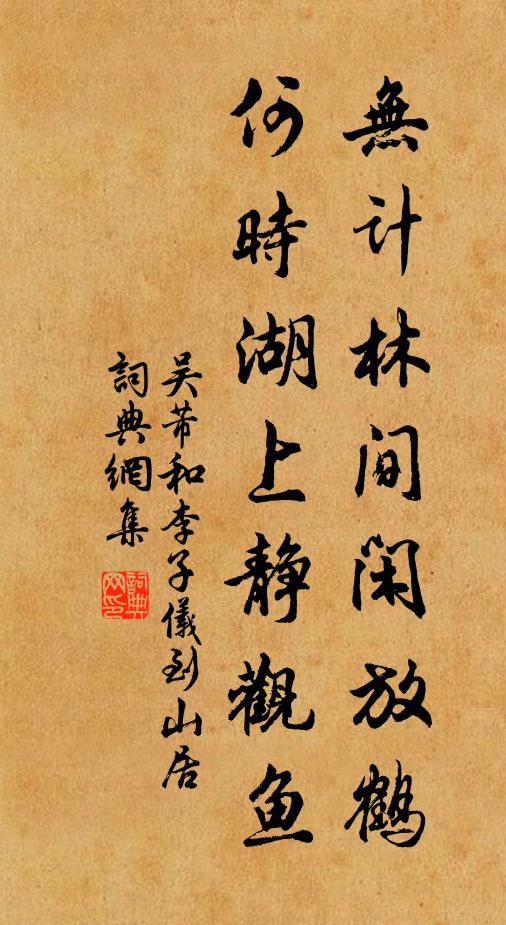 無計林間閑放鶴
何時湖上静觀鱼
吴芾和李子儀到山居
詞典網集
詞典网印